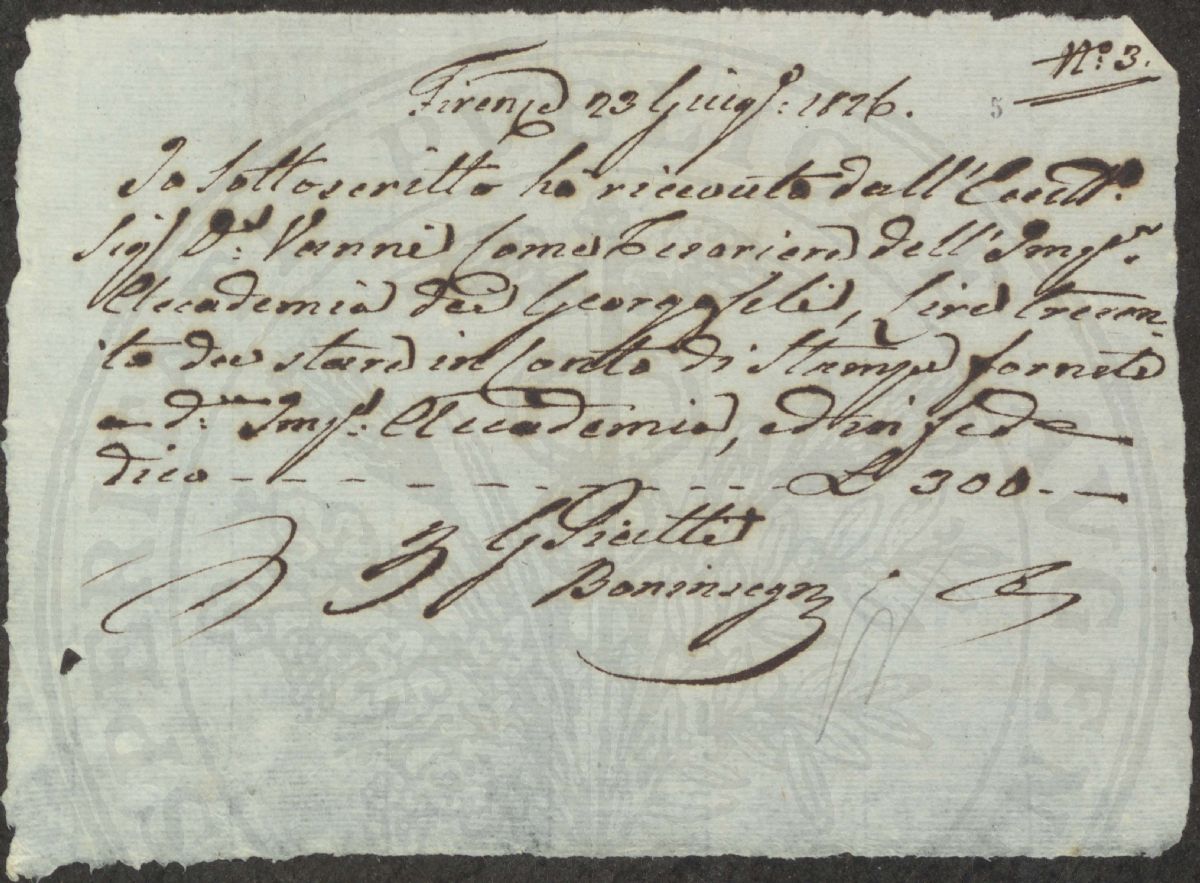 N.° 3.
5
Firenze 23 Giug.° 1826.
Io sottoscritto hò riceuto dall' Eccell.°
Sig.r D.r Vanni come Tesoriere dell' Imp.e
Accademia dei Georgofili, Lire trecen-
to
in conto di Stampe fornite
a d.a Imp.e Accademia, ed in fede
dico - - - - - - - - - - - - £ 300. -
Boninsegni